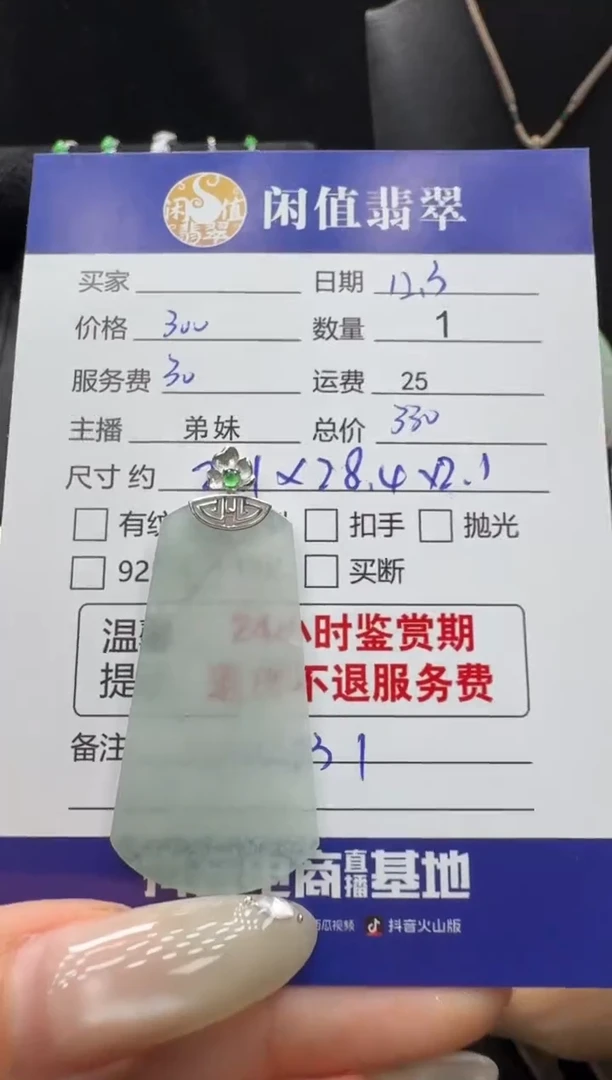 闲值翡翠
闲值翡翠
买家 日期 12.3
价格 300 数量 1
服务费 30 运费 25
主播 弟妹 总价 330
尺寸 约 1×28.4×2.1
有纹 扣手 抛光
92 买断
温 24小时鉴赏期
提 不退服务费
备注 31
电商直播基地
西瓜视频 抖音火山版